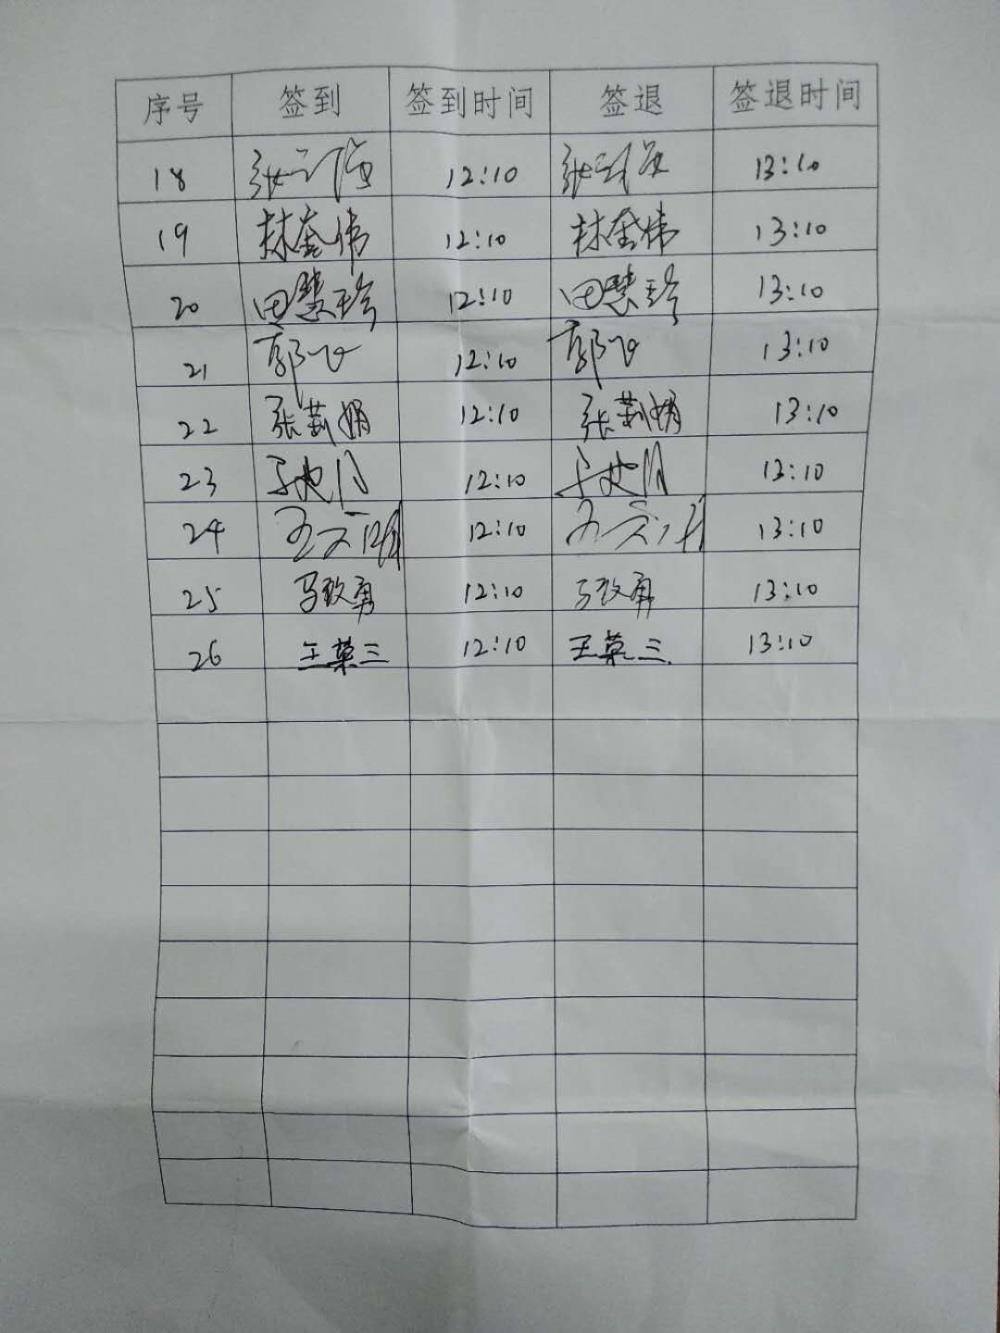 序号 签到 签到时间 签退 签退时间
18 12:10 13:10
19 林奎伟 12:10 林奎伟 13:10
20 田慧珍 12:10 田慧珍 13:10
21 郭飞 12:10 郭飞 13:10
22 张莉娟 12:10 张莉娟 13:10
23 12:10 13:10
24 12:10 13:10
25 马致勇 12:10 马致勇 13:10
26 王荣三 12:10 王荣三 13:10